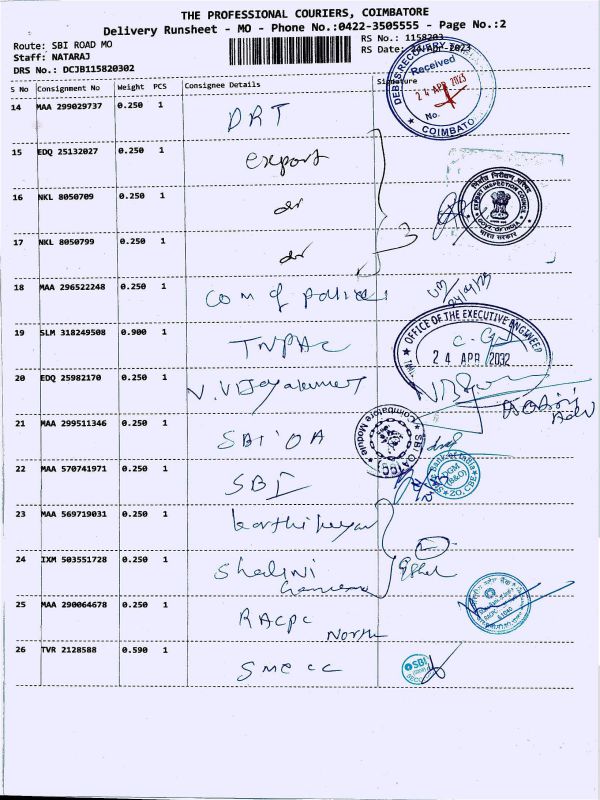 THE PROFESSIONAL COURIERS, COIMBATORE
Delivery Runsheet - MO - Phone No.:0422-3505555 - Page No.:2
Route: SBI ROAD MO
RS No.: 1158203
Staff: NATARAJ
RS Date: 24 Apr 2023
DRS No.: DCJB115820302
S No Consignment No Weight PCS Consignee Details Signature
DEBTS RECOVERY
Received
24 APR 2023
No.
COIMBATO
14 MAA 299029737 0.250 1 DRT
15 EDQ 25132027 0.250 1 export
16 NKL 8050709 0.250 1
EXPORT INSPECTION COUNCIL
GOVT. OF INDIA
भारत सरकार
17 NKL 8050799 0.250 1
3
18 MAA 296522248 0.250 1 com of police
OFFICE OF THE EXECUTIVE ENGINEER
24 APR 2032
19 SLM 318249508 0.900 1
20 EDQ 25982170 0.250 1 V. Vijayakumar
21 MAA 299511346 0.250 1 SBI OA
Coimbatore Module
SBI OA
22 MAA 570741971 0.250 1 SBI
Bank of India
DGM
(B&O)
ZO, CBE
23 MAA 569719031 0.250 1 karthikeyan
24 IXM 503551728 0.250 1 Shalini
25 MAA 290064678 0.250 1 RACPC
North
26 TVR 2128588 0.590 1 SME CC
SBI